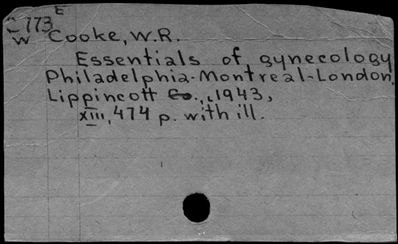 E
C 773
W Cooke, W.R.
Essentials of gynecology
Philadelphia-Montreal-London,
Lippincott Co., 1943,
XIII, 474 p. with ill.